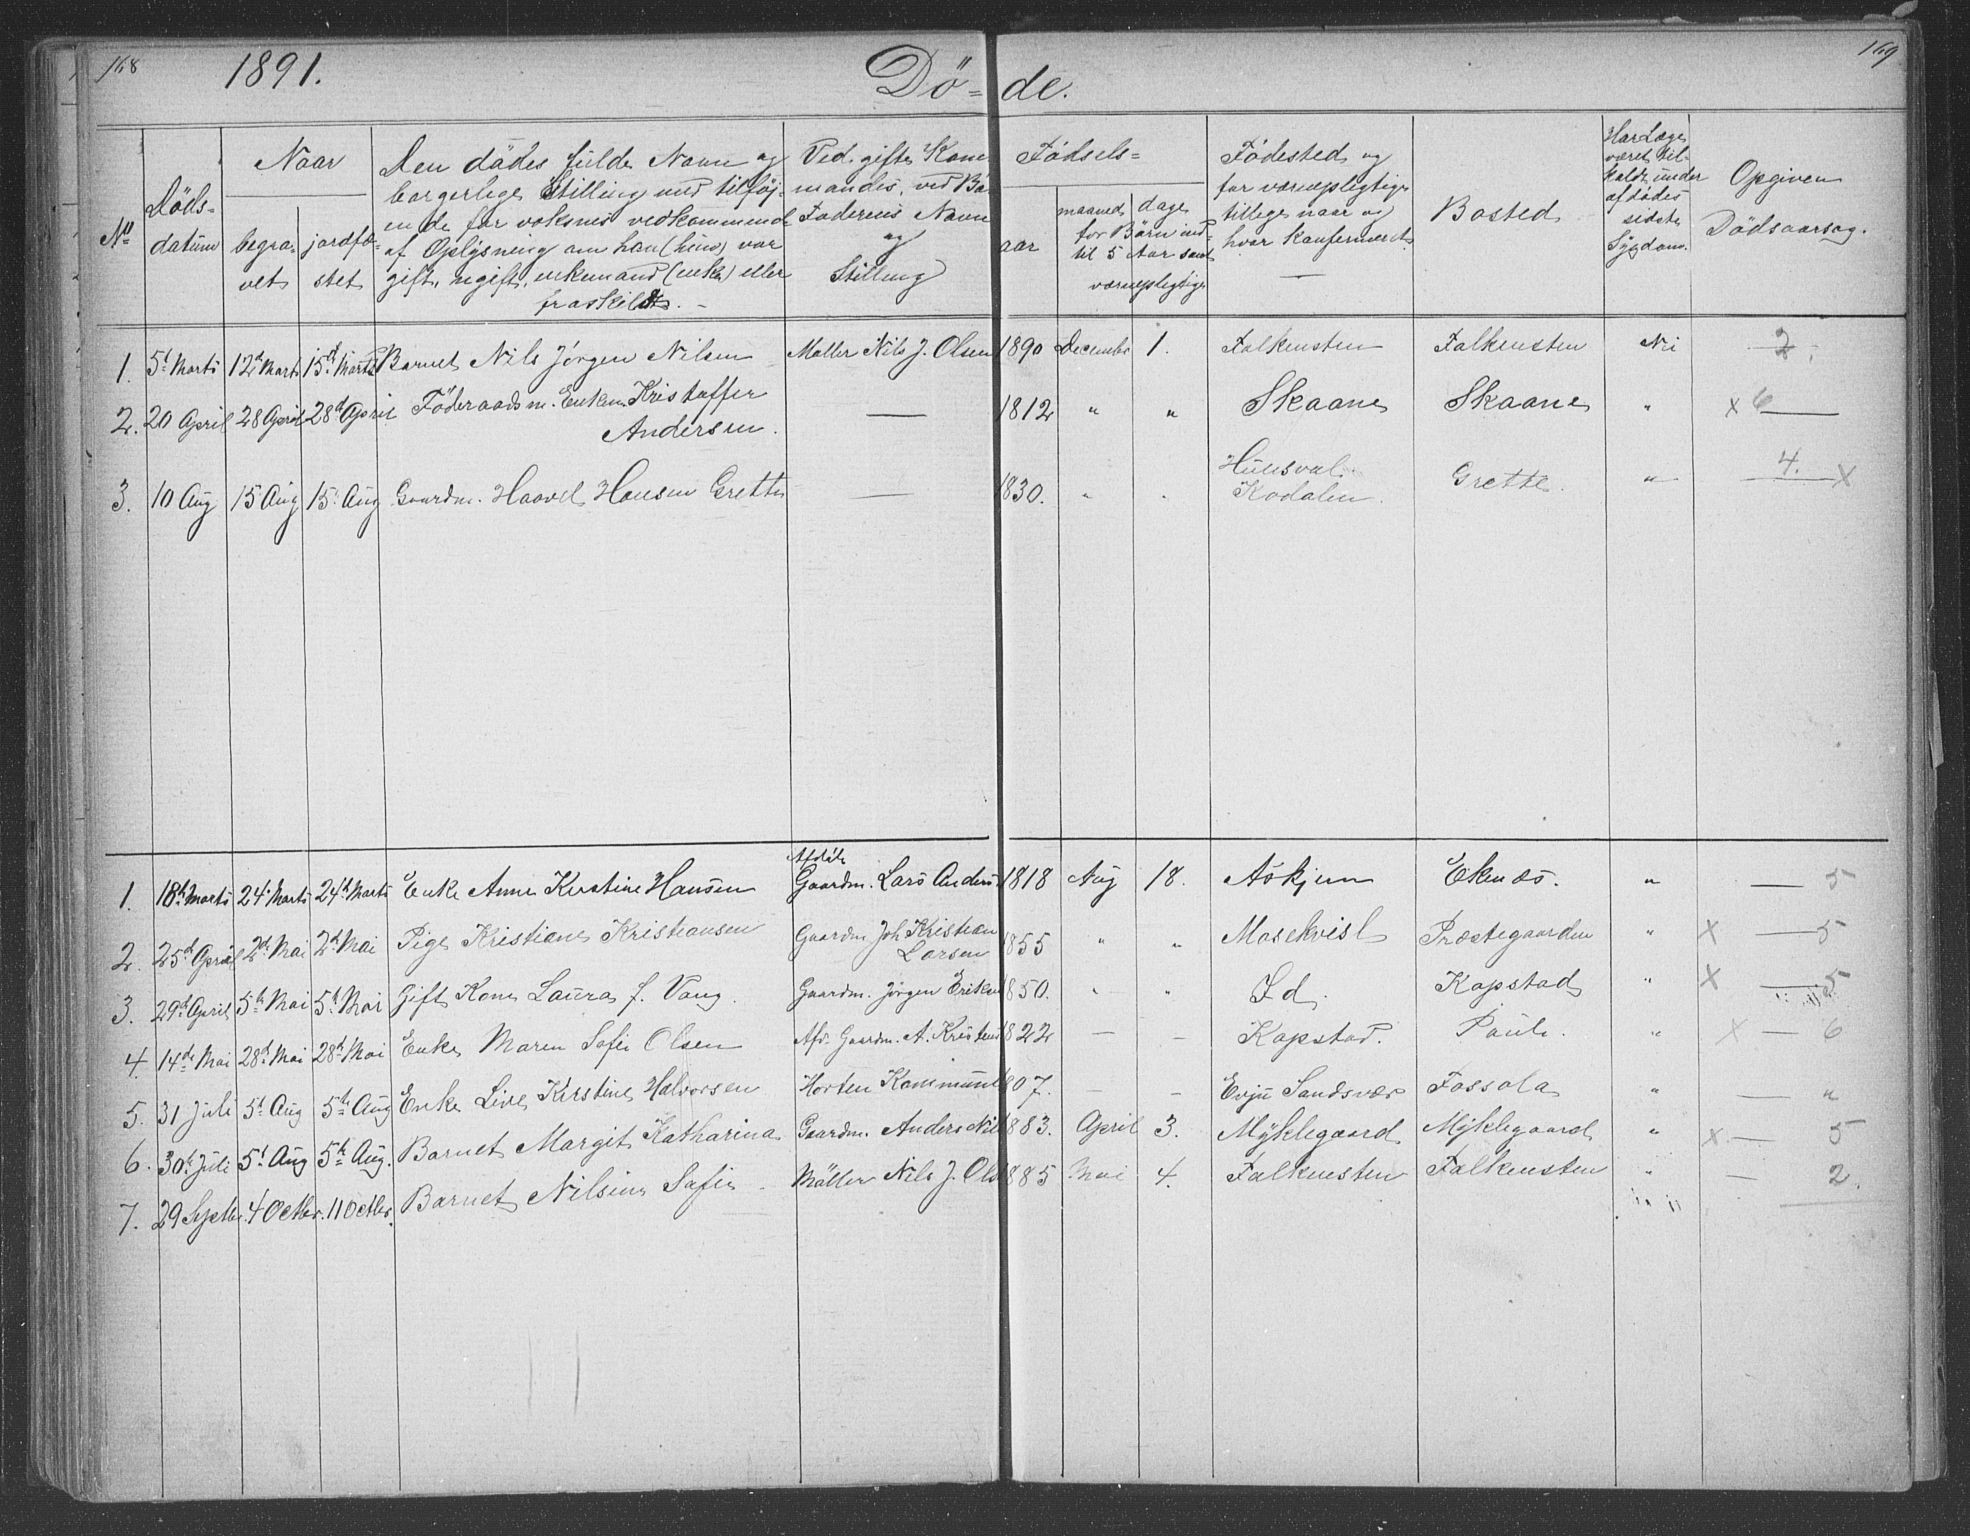 168 1891. Dö-de. 169
No
Döds-datum
Naar
begra-vet
jordfæ-stet
Den dödes fulde Navn og
borgerlige Stilling med tilföj-
ende for voksnes vedkommende
af Oplysning om han (hun) var
gift, ugift, enkemand (enke) eller
fraskilt. -
Ved gifte Kone
mandes, ved Bö
Faderens Navn
og
Stilling
Födsels=
aar
maaned dage
for Börn ind-
til 5 Aar samt
værnepligtige
Födested og
for værnepligtige
tillige naar og
hvor konfirmeret
Bosted
Har Læge
været til-
kaldt under
afdödes
sidste
Sygdom.
Opgiven
Dödsaarsag.
1. 5t Marts 12d Marts 15d Marts Barnet Nils Jörgen Nilsen Möller Nils J. Olsen 1890 Decembr 1. Falkensten Falkensten Nei 2.
2. 20 April 28 April 28d April Föderaadsm. Enkem. Kristoffer — 1812 " " Skaane Skaane " x 6 —
Andersen.
3. 10 Aug 15 Aug 15 Aug Gaardm. Haavel Hansen Grette — 1830. " " Kodalen. Grette. " 4. x
Afdöde
1. 18de Marts 24. Marts 24de Marts Enke Anne Kirstine Hansen Gaardm. Lars Anders 1818 Aug 18. Askjem Ekenes. " — 5
2. 25d April 2d Mai 2d Mai Pige Kristiane Kristiansen Gaardm Joh Kristian 1855 " " Mosekvisl Præstegaarden " x — 5
Larsen
3. 29d April 5te Mai 5te Mai Gift Kone Laura f. Vang. Gaardm. Jörgen Eriksen 1850. " " Id. Kopstad " x — 5
4. 14de Mai 28d Mai 28d Mai Enke Maren Sofie Olsen Afd. Gaardm. A. Kristens 1822 — — Kopstad. Paule. " x — 6
5. 31 Juli 5t Aug 5te Aug Enke Live Kirstine Halvorsen Horten Kommune 807. — — Evju Sandsvær Fossola " — "
6. 30te Juli 5t Aug 5te Aug. Barnet Margit Katharina Gaardm. Anders Nil 883. April 3. Myklegaard Myklegaard " x — 5
7. 29 Septbr. 4 Octbr. 11 Octbr. Barnet Nilsine Sofie - Möller Nils J. Ols 885 Mai 4. Falkensten Falkensten " — 2.